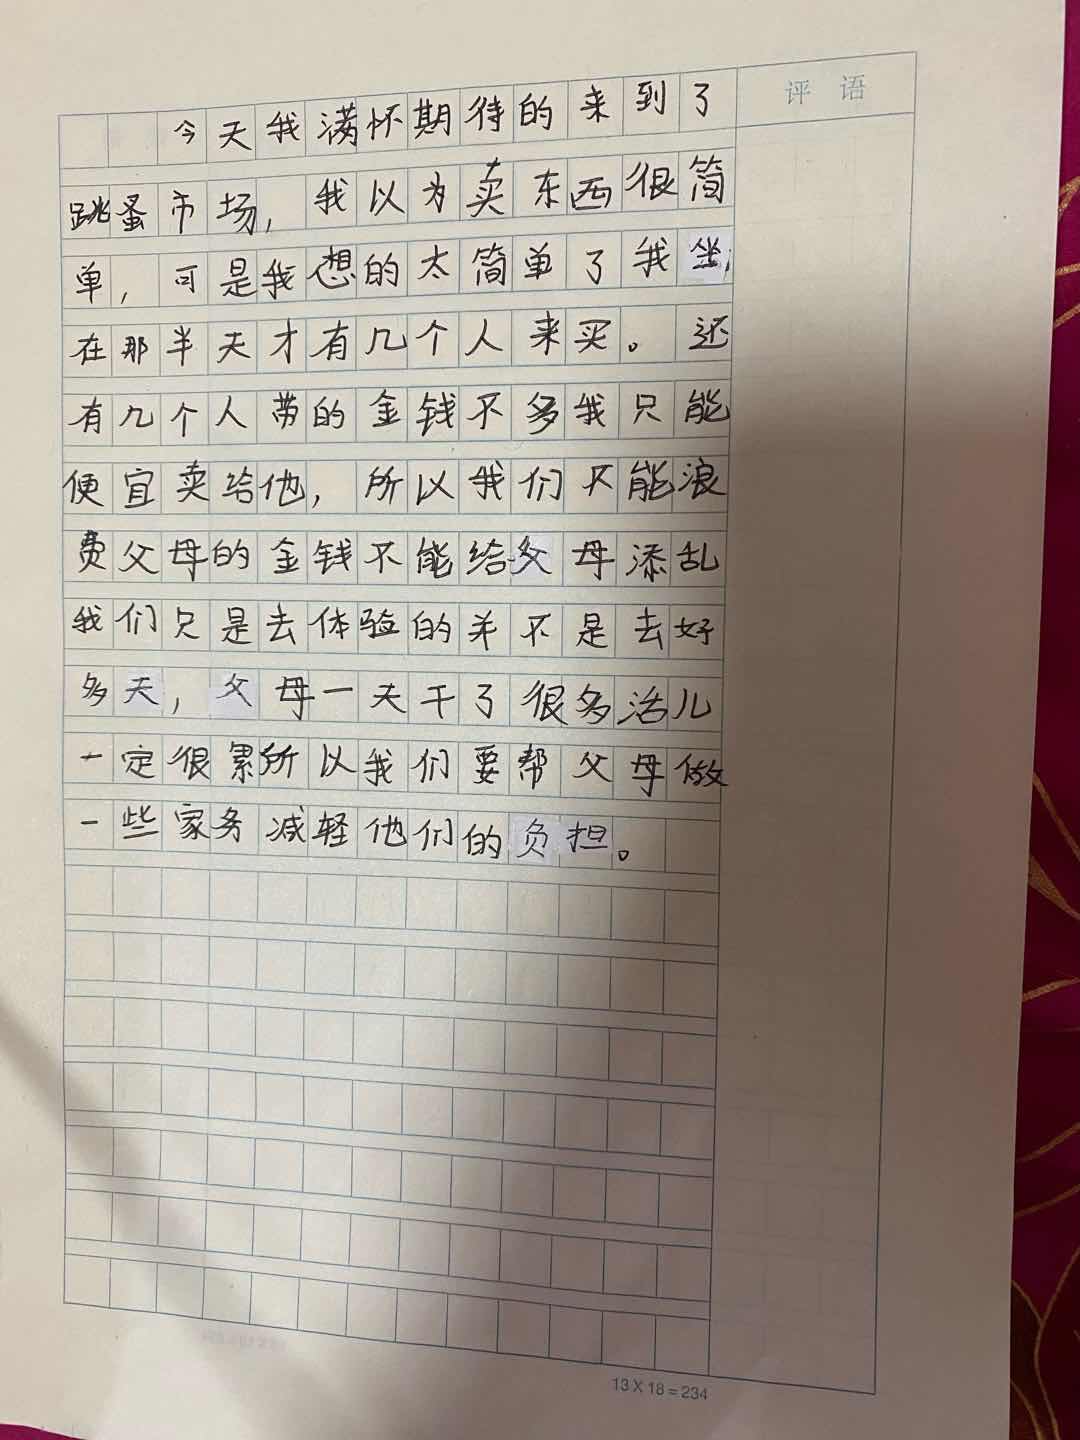 评语
今天我满怀期待的来到了
跳蚤市场，我以为卖东西很简
单，可是我想的太简单了我坐
在那半天才有几个人来买。还
有几个人带的金钱不多我只能
便宜卖给他，所以我们不能浪
费父母的金钱不能给父母添乱
我们只是去体验的并不是去好
多天，父母一天干了很多活儿
一定很累所以我们要帮父母做
一些家务减轻他们的负担。
13×18=234